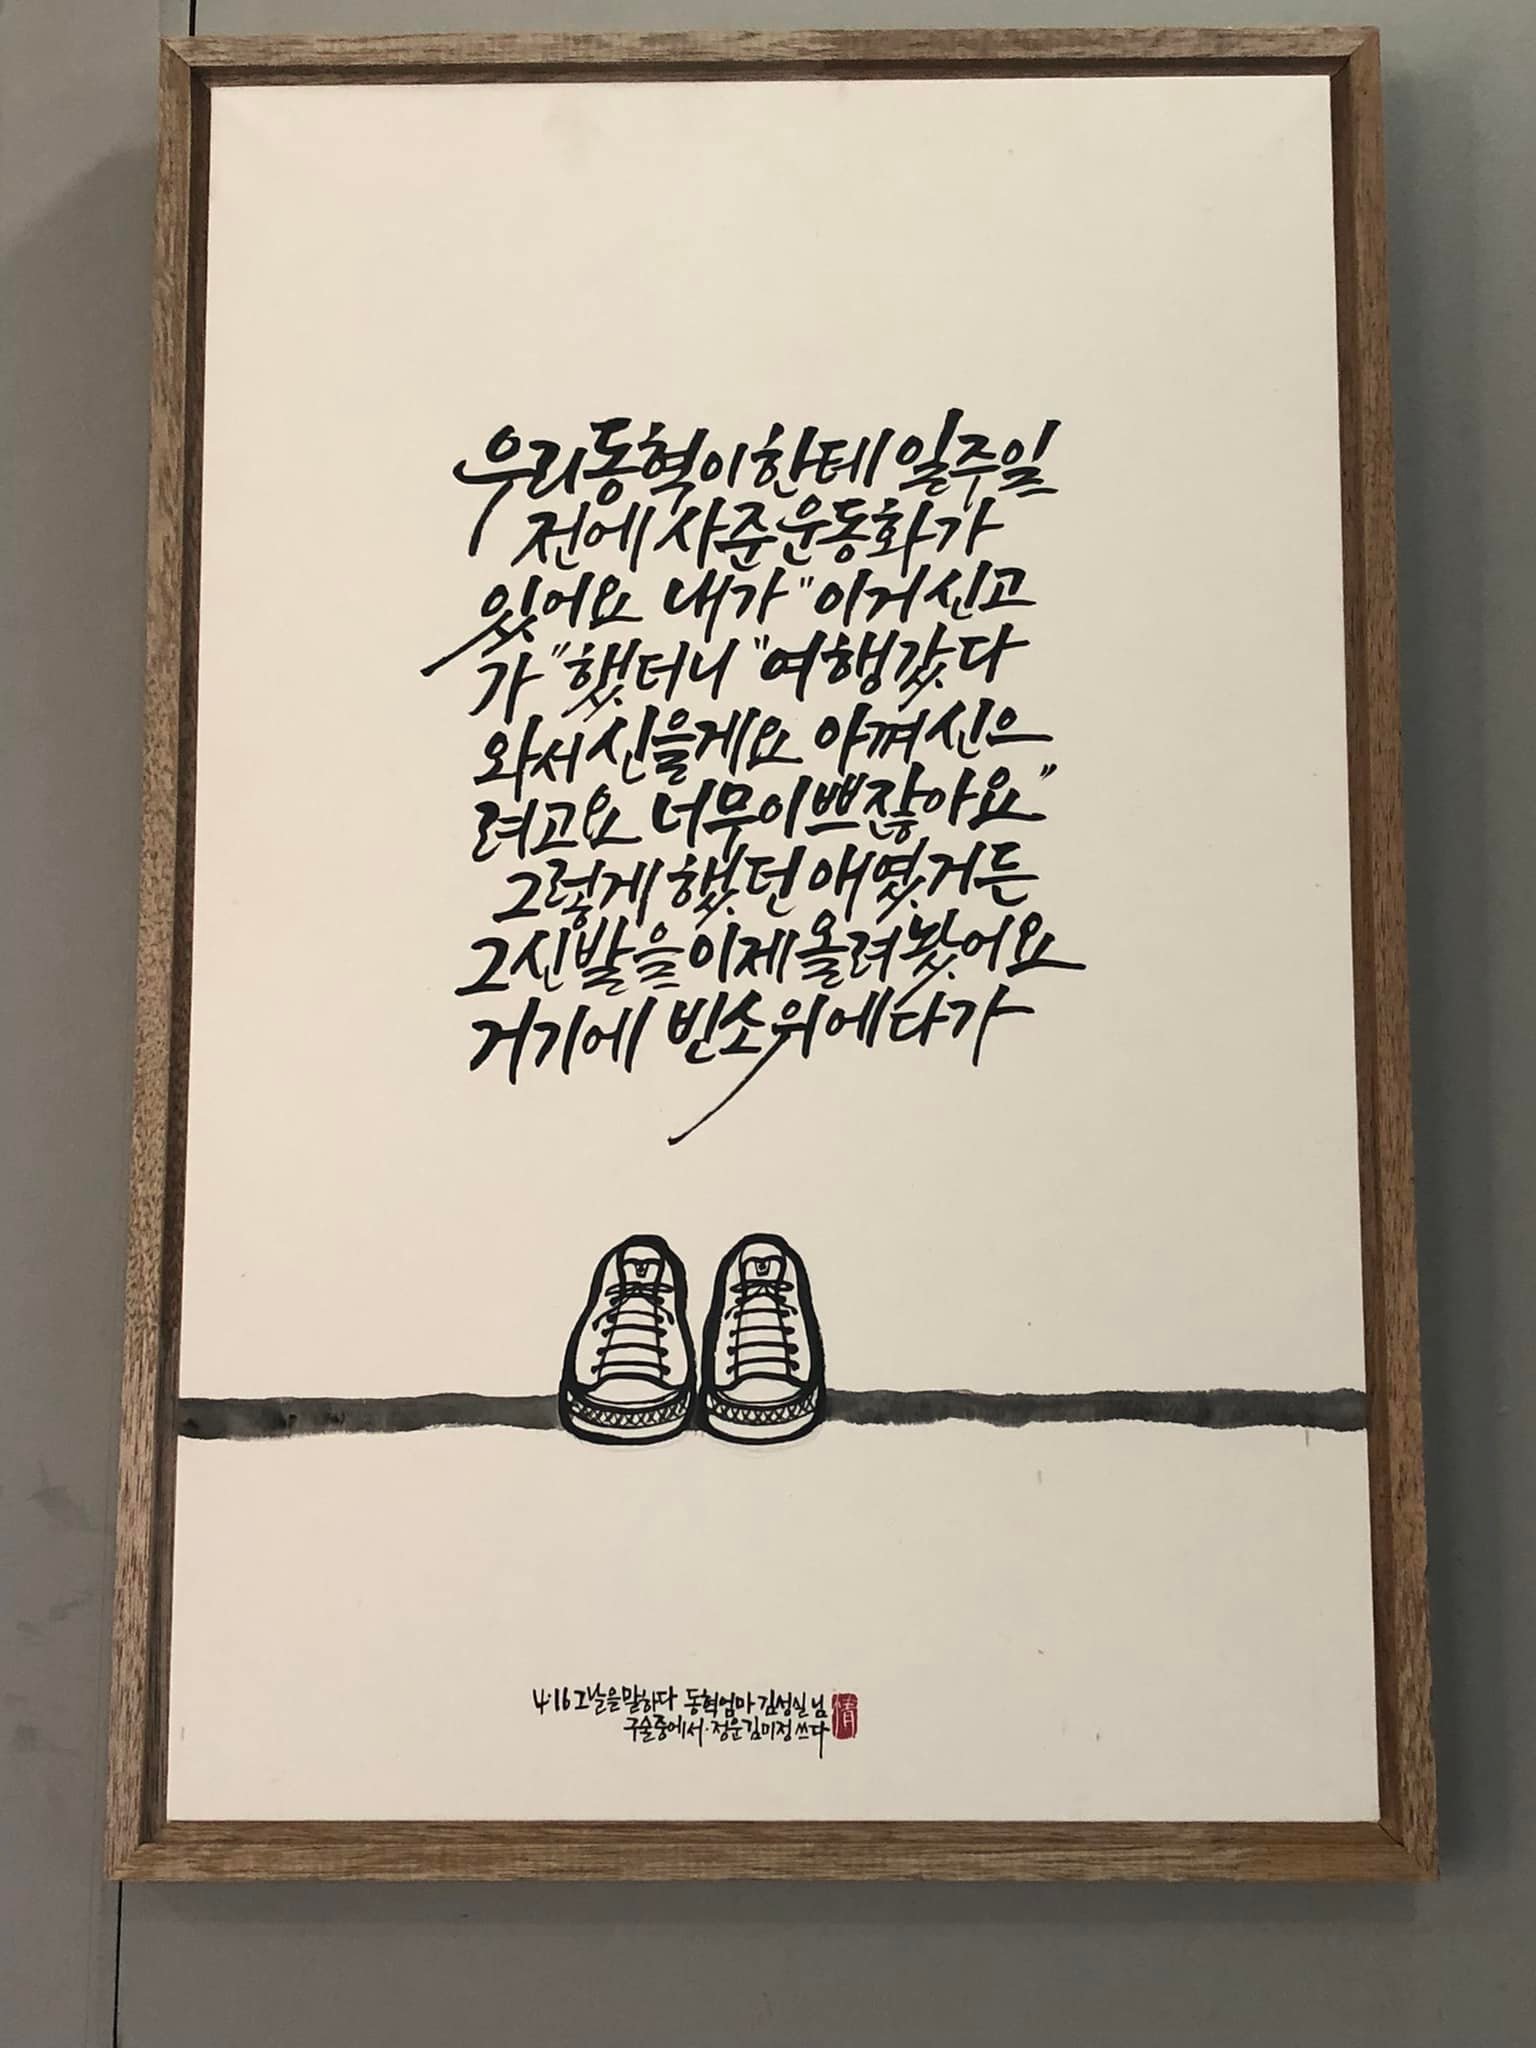 우리 동혁이한테 일주일
전에 사준 운동화가
있어요 내가 "이거 신고
가" 했더니 "여행 갔다
와서 신을게요 아껴 신으
려고요 너무 이쁘잖아요"
그렇게 했던 애였거든
그 신발을 이제 올려놨어요
거기에 빈소 위에다가
4·16 그날을 말하다 동혁엄마 김성실님
구술중에서·정운 김미정 쓰다
情